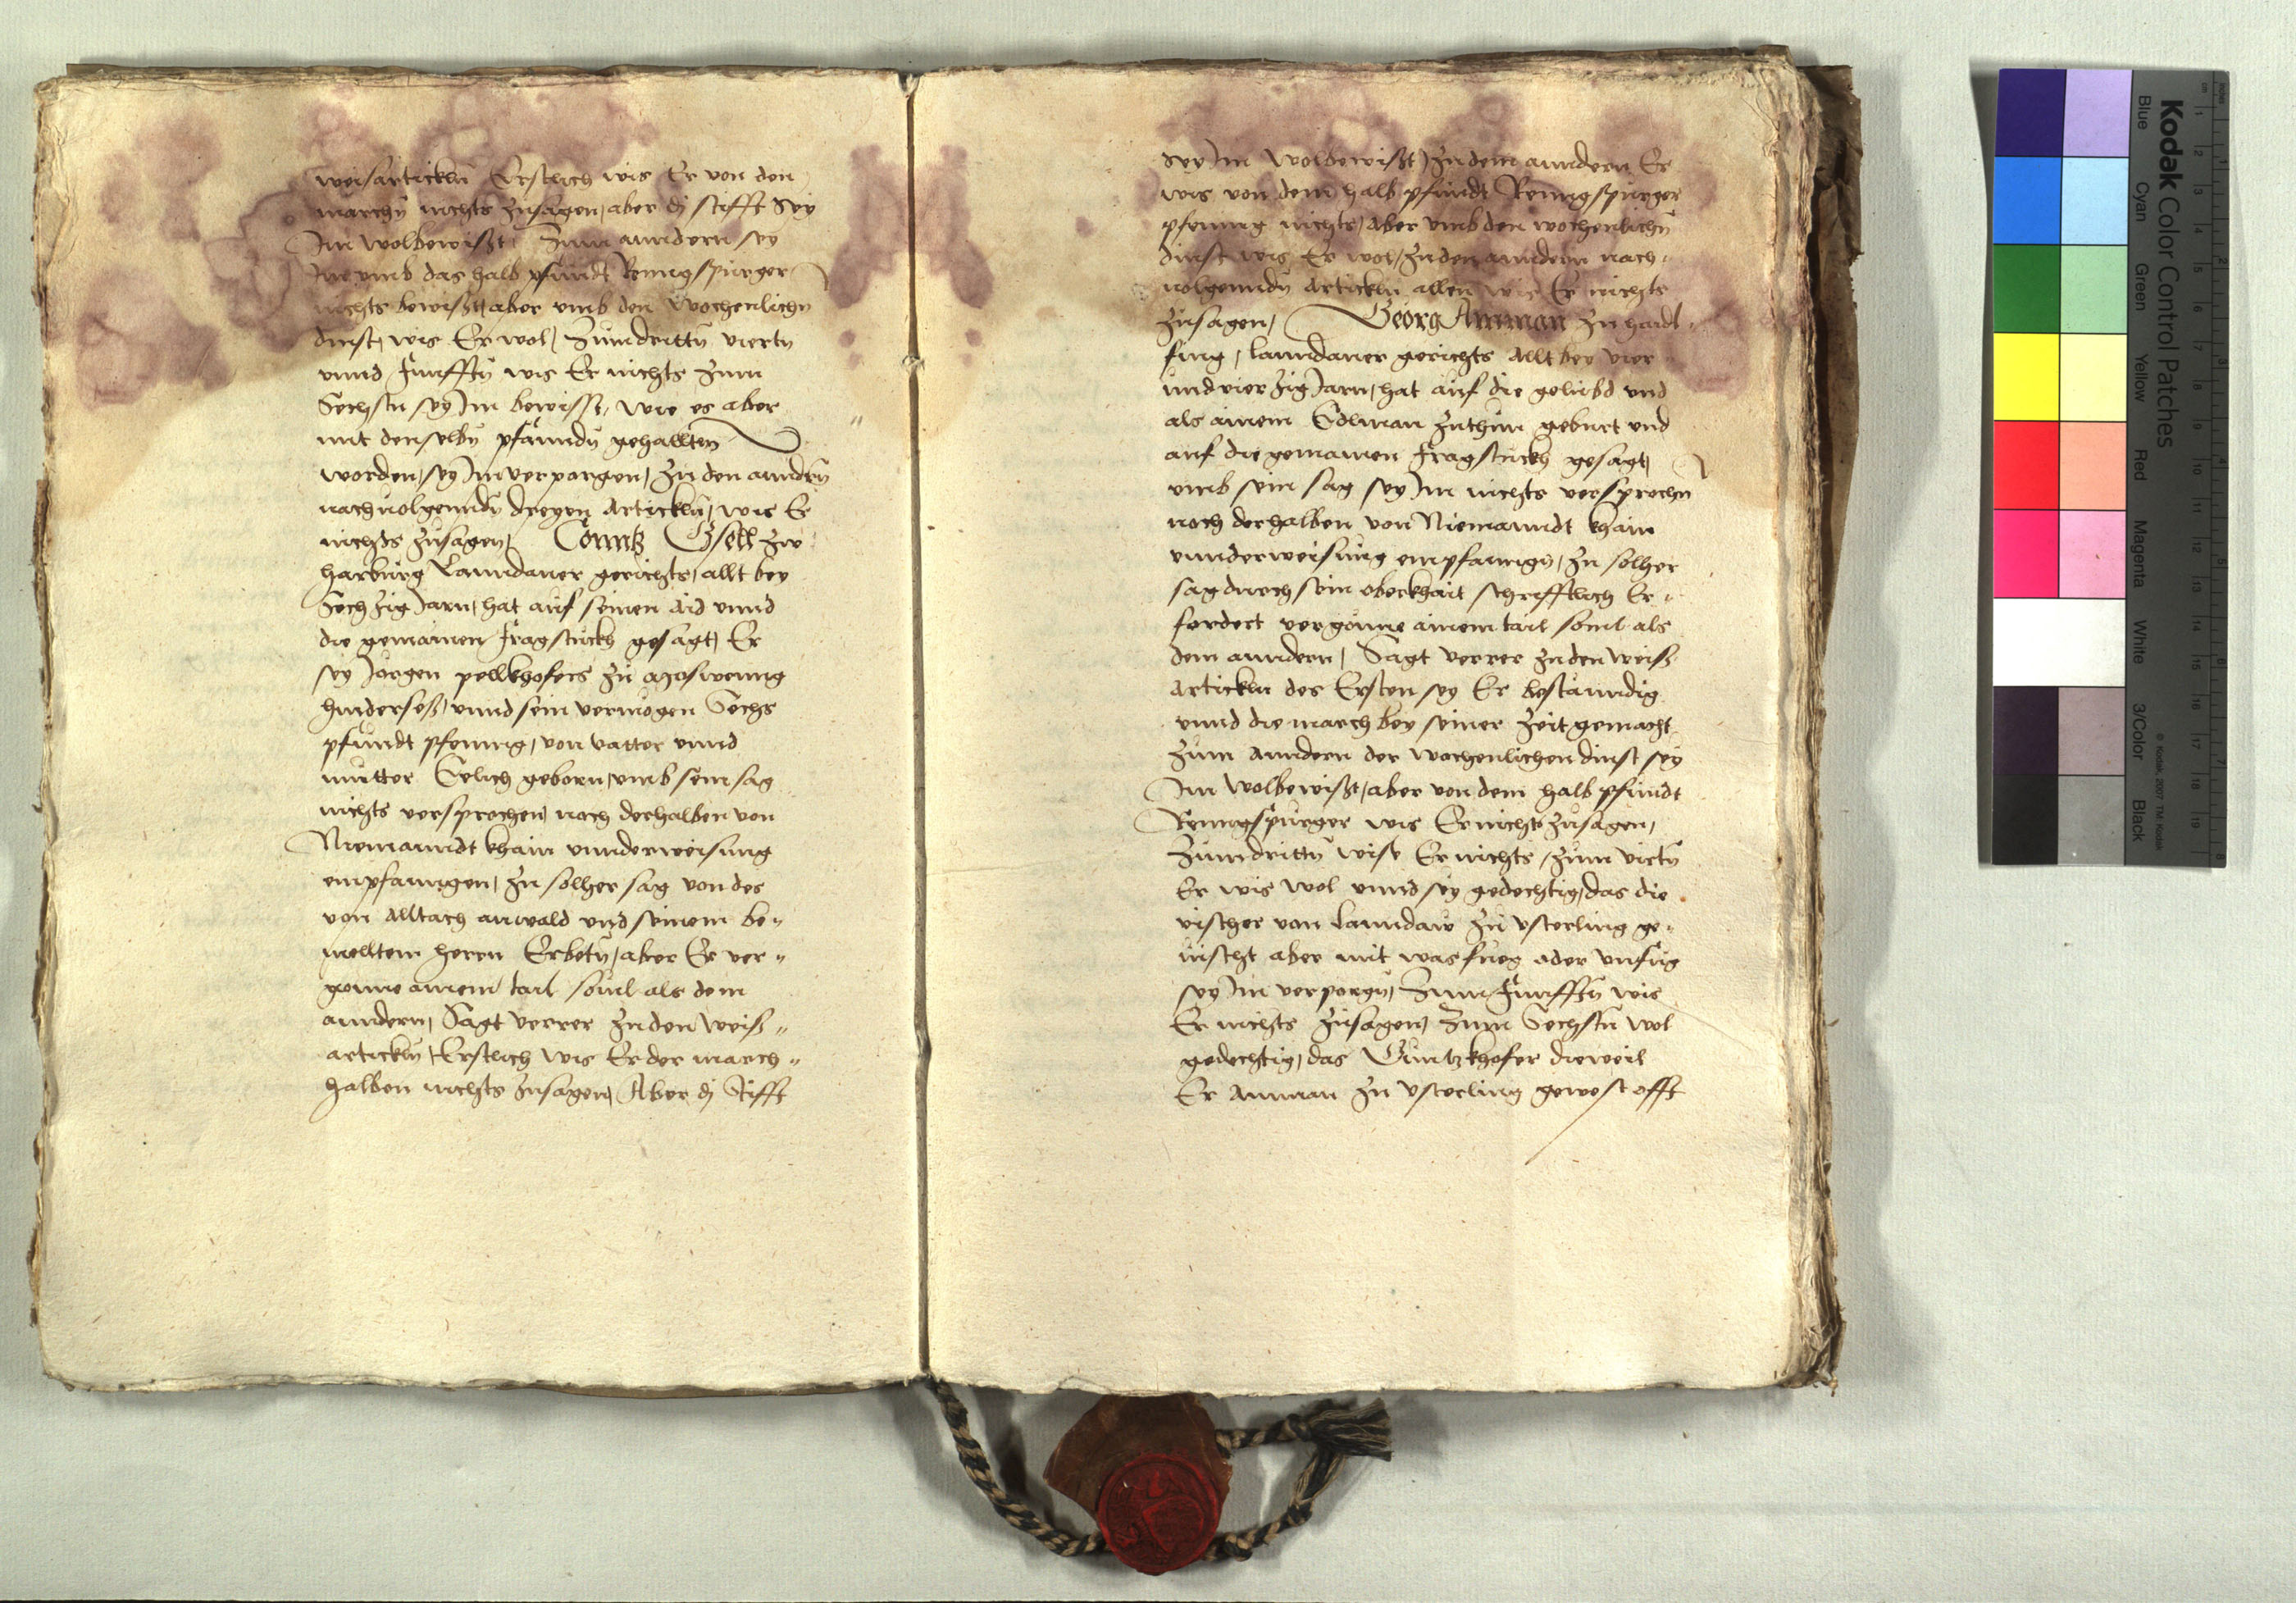 weisartickln Erstlich wis Er von den
marchn nichts zusagen, aber dj stifft Sey
Im wolbewißt, Zum anndern sey
Ime vmb das halb pfundt Renngspurger
nichts bewißt, aber vmb den Wochenlichn
dinst, wis Er wol, Zum drittn viertn
vnnd Funfftn wis Er nichts Zum
Sechstn sey Im bewisst, wie es aber
mit denselbn pfanndn gehallten
worden, sey Im verporgen, Zu den anndern
nachuolgenndn dreyen Artickln, wis Er
nichts Zusagen, Conntz Gsell Zw
harburg Lanndauer gerichts, allt bey
Sechzig Jarn, hat auf seinen Aid vnnd
die gemainen fragstuckh gesagt, Er
sey Jorgen pellkhofers Zu Moswenng
hindersess, vnnd sein vermogen Sechs
pfundt pfennig, von vatter vnnd
mutter Eelich geborn, vmb sein sag
nichts versprochen, noch derhalben von
Niemanndt khain vnnderweisung
empfanngen, Zu solher sag von des
von Alltach anwald vnd seinem be„
melltem herrn Erbetn, aber Er ver„
gonne ainem tail souil als dem
anndern, Sagt verrer Zu den Weiß„
artickln, Erstlich wis Er der march„
halben nichts Zusagen, Aber dj Stifft
sey Im Wolbewißt, Zu dem anndern Er
wis von dem halb pfundt Renngspurger
pfennig nichts, Aber vmb den wochenlichn
dinst wis Er wol, Zu den anndern nach„
uolgenndn Artickln allen wis Er nichts
Zusagen, Georg Amman Zu haidl„
fing, lanndauer gerichts Allt bey vier
vnd vierzig Jarn, hat auf die gelubd vnd
als ainem Edlman Zuthun geburt vnd
auf die gemainen fragstuckh gesagt,
vmb sein sag sey Im nichts versprochn
noch derhalben von Niemanndt khain
vnnderweisung empfanngn, Zu solher
sag durch sein oberkhait schrifftlich Er„
fordert vergonne ainem tail souil als
dem anndern, Sagt verrer Zu den weiß
Artickln des Ersten sey Er bestanndig
vnnd die march bey seiner Zeit gemacht
Zum Anndern der wochenlichen dinst sey
Im Wolbewißt, aber von dem halb pfundt
Renngspurger wis Er nichts Zusagen,
Zum drittn wise Er nichts, Zum viertn
Er wis wol vnnd sey gedechtig, das die
vischer von Lanndaw Zu vsterling ge„
uischt aber mit was fueg oder vnfug
sey Im verporgn, Zum Funfftn wis
Er nichts Zusagen, Zum Sechstn wol
gedechtig, das Guntzkhofer dieweil
Er Amman Zu vsterling gewest offt
Kodak Color Control Patches
Blue
Cyan
Green
Yellow
Red
Magenta
White
3/Color
Black